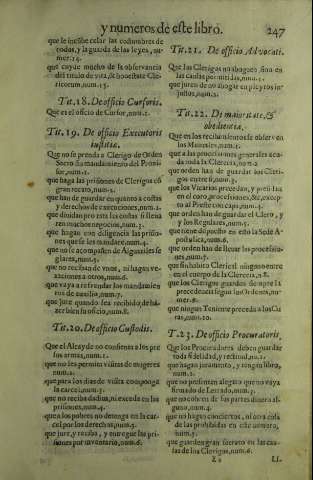 y numeros de este libro. 247
que le incũbe celar las costumbres de
todos, y la guarda de las leyes, nu-
mer. 14.
que cuyde mucho de la observancia
del titulo de vita, & honestate Cle-
ricorum, num. 15.
Tit. 18. De officio Cursoris.
Que es el officio de Cursor, num. 1.
Tit. 19. De officio Executoris
iustitiæ.
Que no se prenda a Clerigo de Orden
Sacro sin mandamiento del Provi-
sor, num. 1.
que haga las prisiones de Clerigos cõ
gran recato, num. 2.
que han de guardar en quanto a costas
y derechos de executiones, num. 2.
que dividan pro rata las costas si llena
ren muchos negocios, num. 3.
que hagan con diligencia las prisio-
nes que se les mandare, num. 4.
que no se acompañen de Alguaziles se
glares, num. 5.
que no reciban de unos, ni hagan ve-
xaciones a otros, num. 6.
que vaya a refrendar los mandamien
tos de auxilio, num. 7.
que jure quando sea recibido, de hà-
zer bien su oficio, num. 8.
Tit. 20. De officio Custodis.
Que el Alcayde no consienta a los pre
sos armas, num. 1.
que no les permita visitas de mugeres
num. 2.
que para los dias de visita componga
la carcel, num. 3.
que no reciba dadiva, ni exceda en las
prisiones, num. 4.
que a los pobres no detenga en la car-
cel por los derechos, num. 5.
que jure, y reciba, y entregue las pri-
siones por inventario, num. 6.
Tit. 21. De officio Advocati.
Que los Clerigos no aboguen, sino en
las causas permitidas, num. 1.
que juren de no abogar en pleytos in-
justos, num. 2.
Tit. 22. De maioritate, &
obedientia.
Que en los recibimientos se observen
los Manuales, num. 1.
que a las processiones generales acu-
da toda la Clerecia, num. 2.
que orden han de guardar los Cleri-
gos entre si, num. 3.
que los Vicarios precedan, y presidan
en el coro, processiones, &c. excep-
to al Preste con capa, num. 4.
que orden han de guardar el Clero, y
y los Regulares, num. 5.
que tiene dispuesto en esto la Sede A-
postolica, num. 6.
que orden han de llevar las processio-
nes, num. 7.
que sin habito Clerical ninguno entre
en el cuerpo de la Clerecia, n. 8.
que los Clerigos guarden siempre la
precedencia segun sus Ordenes, nu-
mer. 9.
que ningun Teniente preceda a los Cu
ras, num. 10.
Tit. 23. De officio Procuratoris.
Que los Procuradores deben guardar
toda fidelidad, y rectitud, nu. 1.
que hagan juramento, y tengan libro,
num. 2.
que no presenten alegato que no vaya
firmado de Letrado, num. 3.
que no cobren de las partes dinero al-
guno, num. 4.
que no hagan conciertos, ni otra cosa
de las prohibidas en este numero,
num. 5.
que guarden gran secreto en las cau-
sas de los Clerigos, num. 6.
LI.